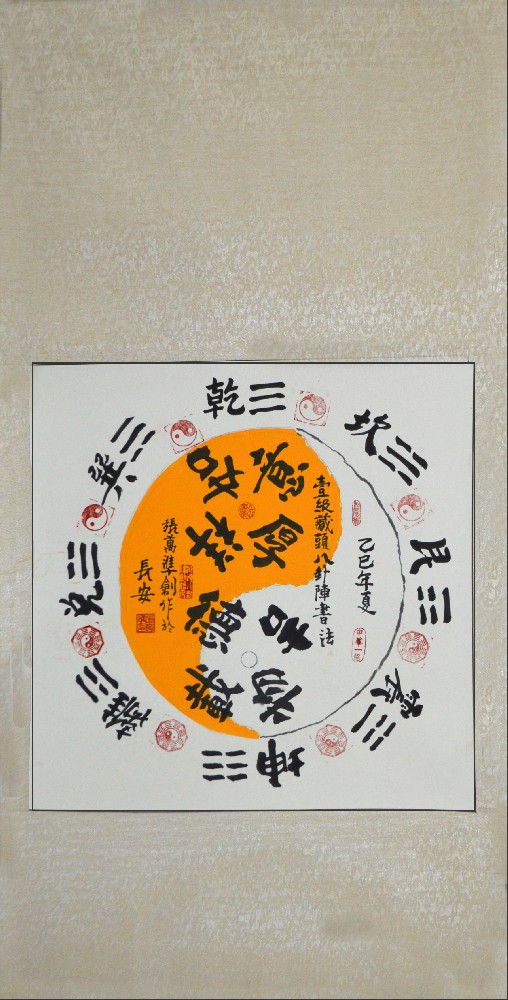 乾
坎
艮
震
坤
離
兑
巽
厚德載物
吉祥如意
壹級藏頭八卦陣書法
乙巳年夏
張萬準創作於
長安